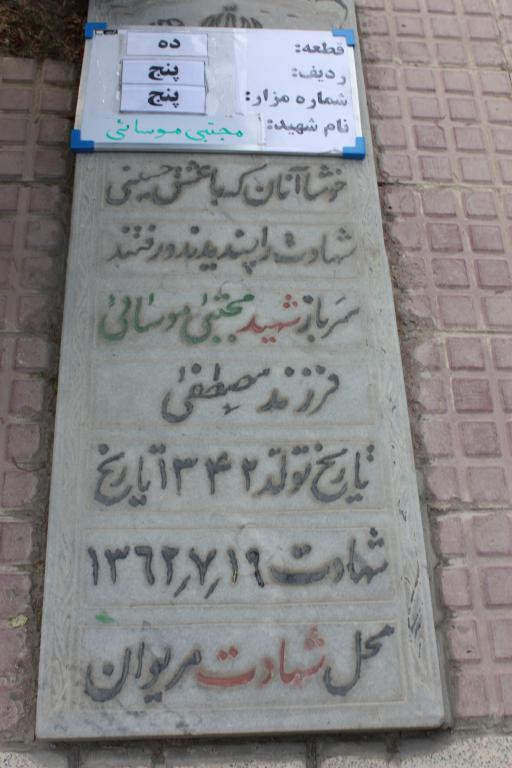 قطعه: ده
ردیف: پنج
شماره مزار: پنج
نام شهید: مجتبی موسائی
خوشا آنان که با عشق حسینی
شهادت را پسندیدند و رفتند
سرباز شهید مجتبیٰ موسائی
فرزند مصطفیٰ
تاریخ تولد ۱۳۴۲ تاریخ
شهادت ۱۹٫۷٫۱۳۶۲
محل شهادت مریوان